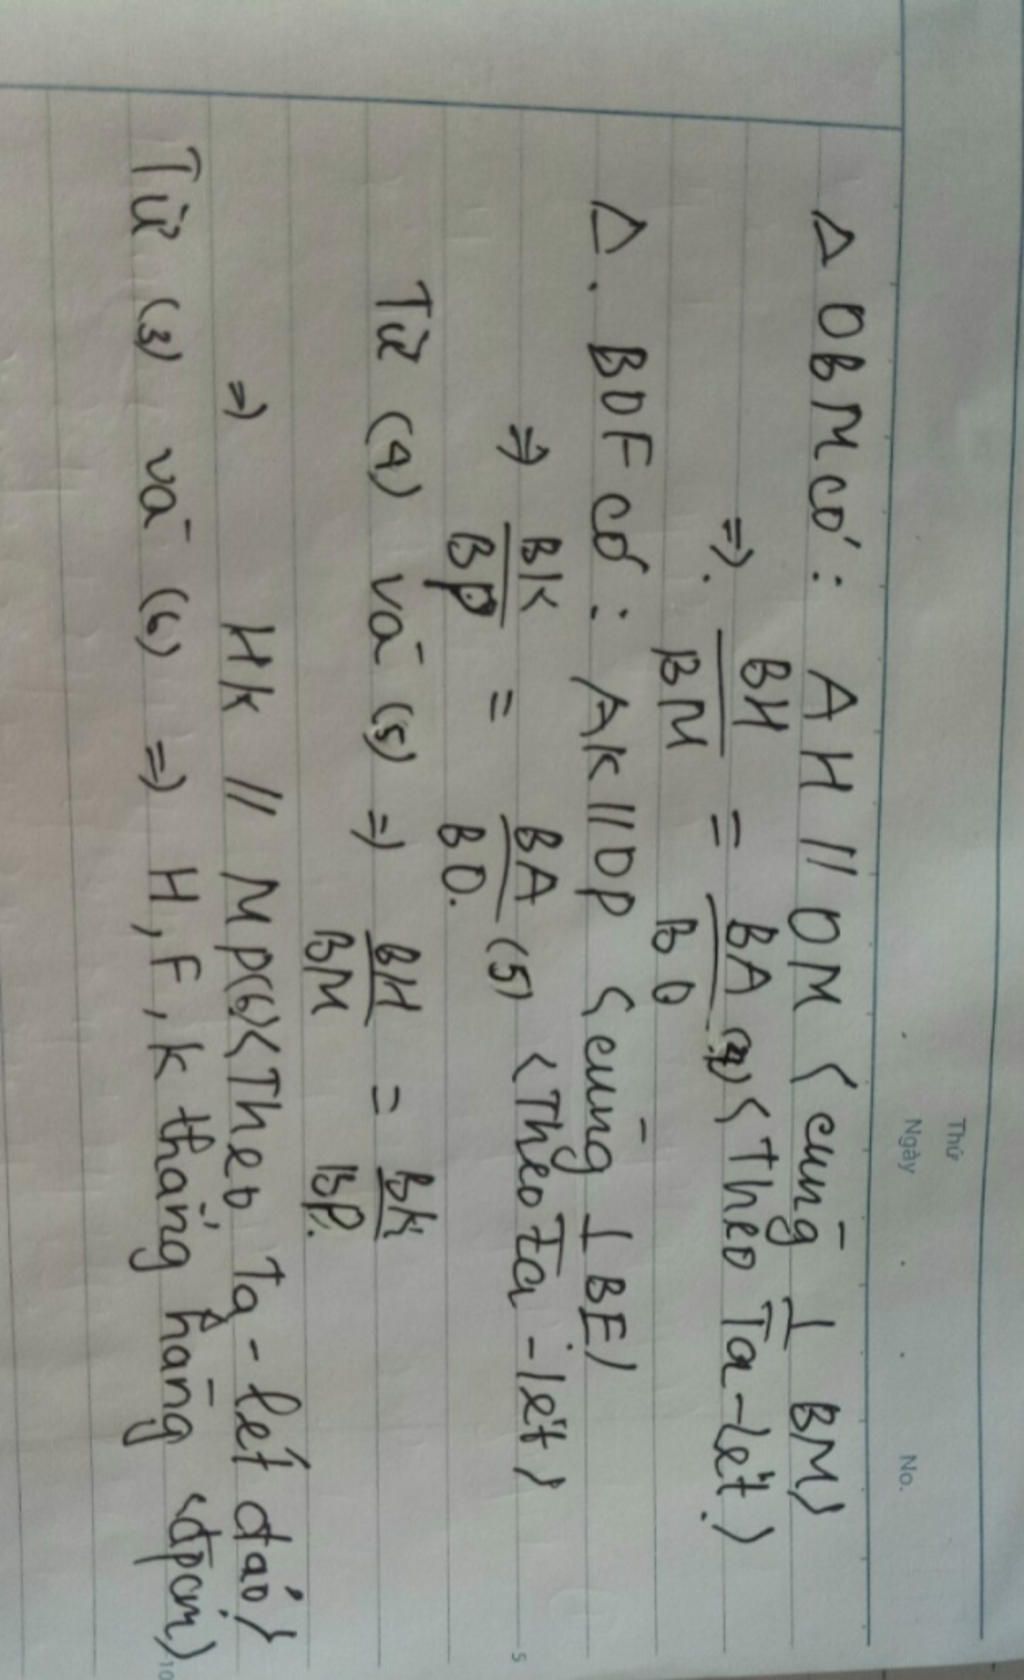 Thứ
Ngày No.
Δ OBM có: AH // OM (cùng ⊥ BM)
⇒ BH/BM = BA/BO (4) (Theo Ta-lét)
Δ. BOF có: AK // OP (cùng ⊥ BE)
⇒ BK/BP = BA/BO. (5) (Theo Ta-lét)
5
Từ (4) và (5) ⇒ BH/BM = BK/BP.
⇒ HK // MP(6) (Theo Ta-lét đảo)
Từ (3) và (6) ⇒ H, F, K thẳng hàng (đpcm)
10